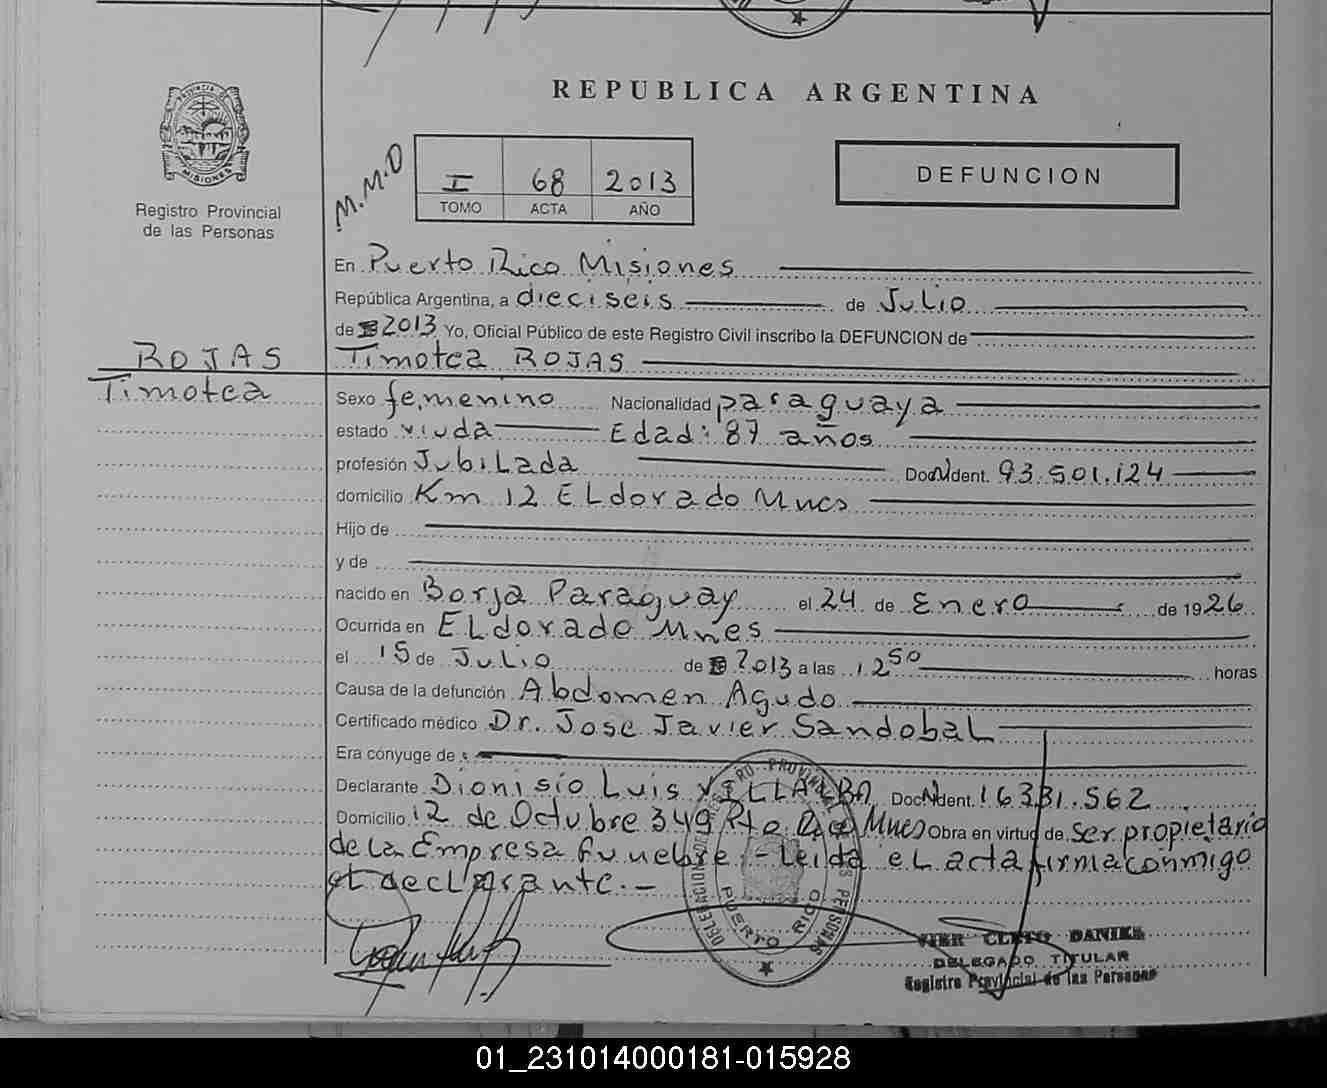 REPUBLICA ARGENTINA
PROVINCIA DE MISIONES
Registro Provincial
de las Personas
M.M.D
I 68 2013
TOMO ACTA AÑO
DEFUNCION
En Puerto Rico Misiones
República Argentina, a dieciseis de Julio
de 2013 Yo, Oficial Público de este Registro Civil inscribo la DEFUNCION de
ROJAS
Timotea
Timotea ROJAS
Sexo femenino Nacionalidad paraguaya
estado viuda Edad: 87 años
profesión Jubilada Doc N Ident. 93.501.124
domicilio Km 12 ELdorado Mnes
Hijo de
y de
nacido en Borja Paraguay el 24 de Enero de 1926
Ocurrida en ELdorado Mnes
el 15 de Julio de 2013 a las 12 50 horas
Causa de la defunción Abdomen Agudo
Certificado médico Dr. Jose Javier Sandobal
Era cónyuge de
Declarante Dionisio Luis VILLALBA Doc N Ident. 16331.562
Domicilio 12 de Octubre 349 Pto Rico Mnes Obra en virtud de ser propietario
de La Empresa funebre.- Leida eL acta firma conmigo
el declarante.-
PUERTO RICO
CLETO DANIKE
DELEGADO TITULAR
Registro Provincial de las Personas
01_231014000181-015928